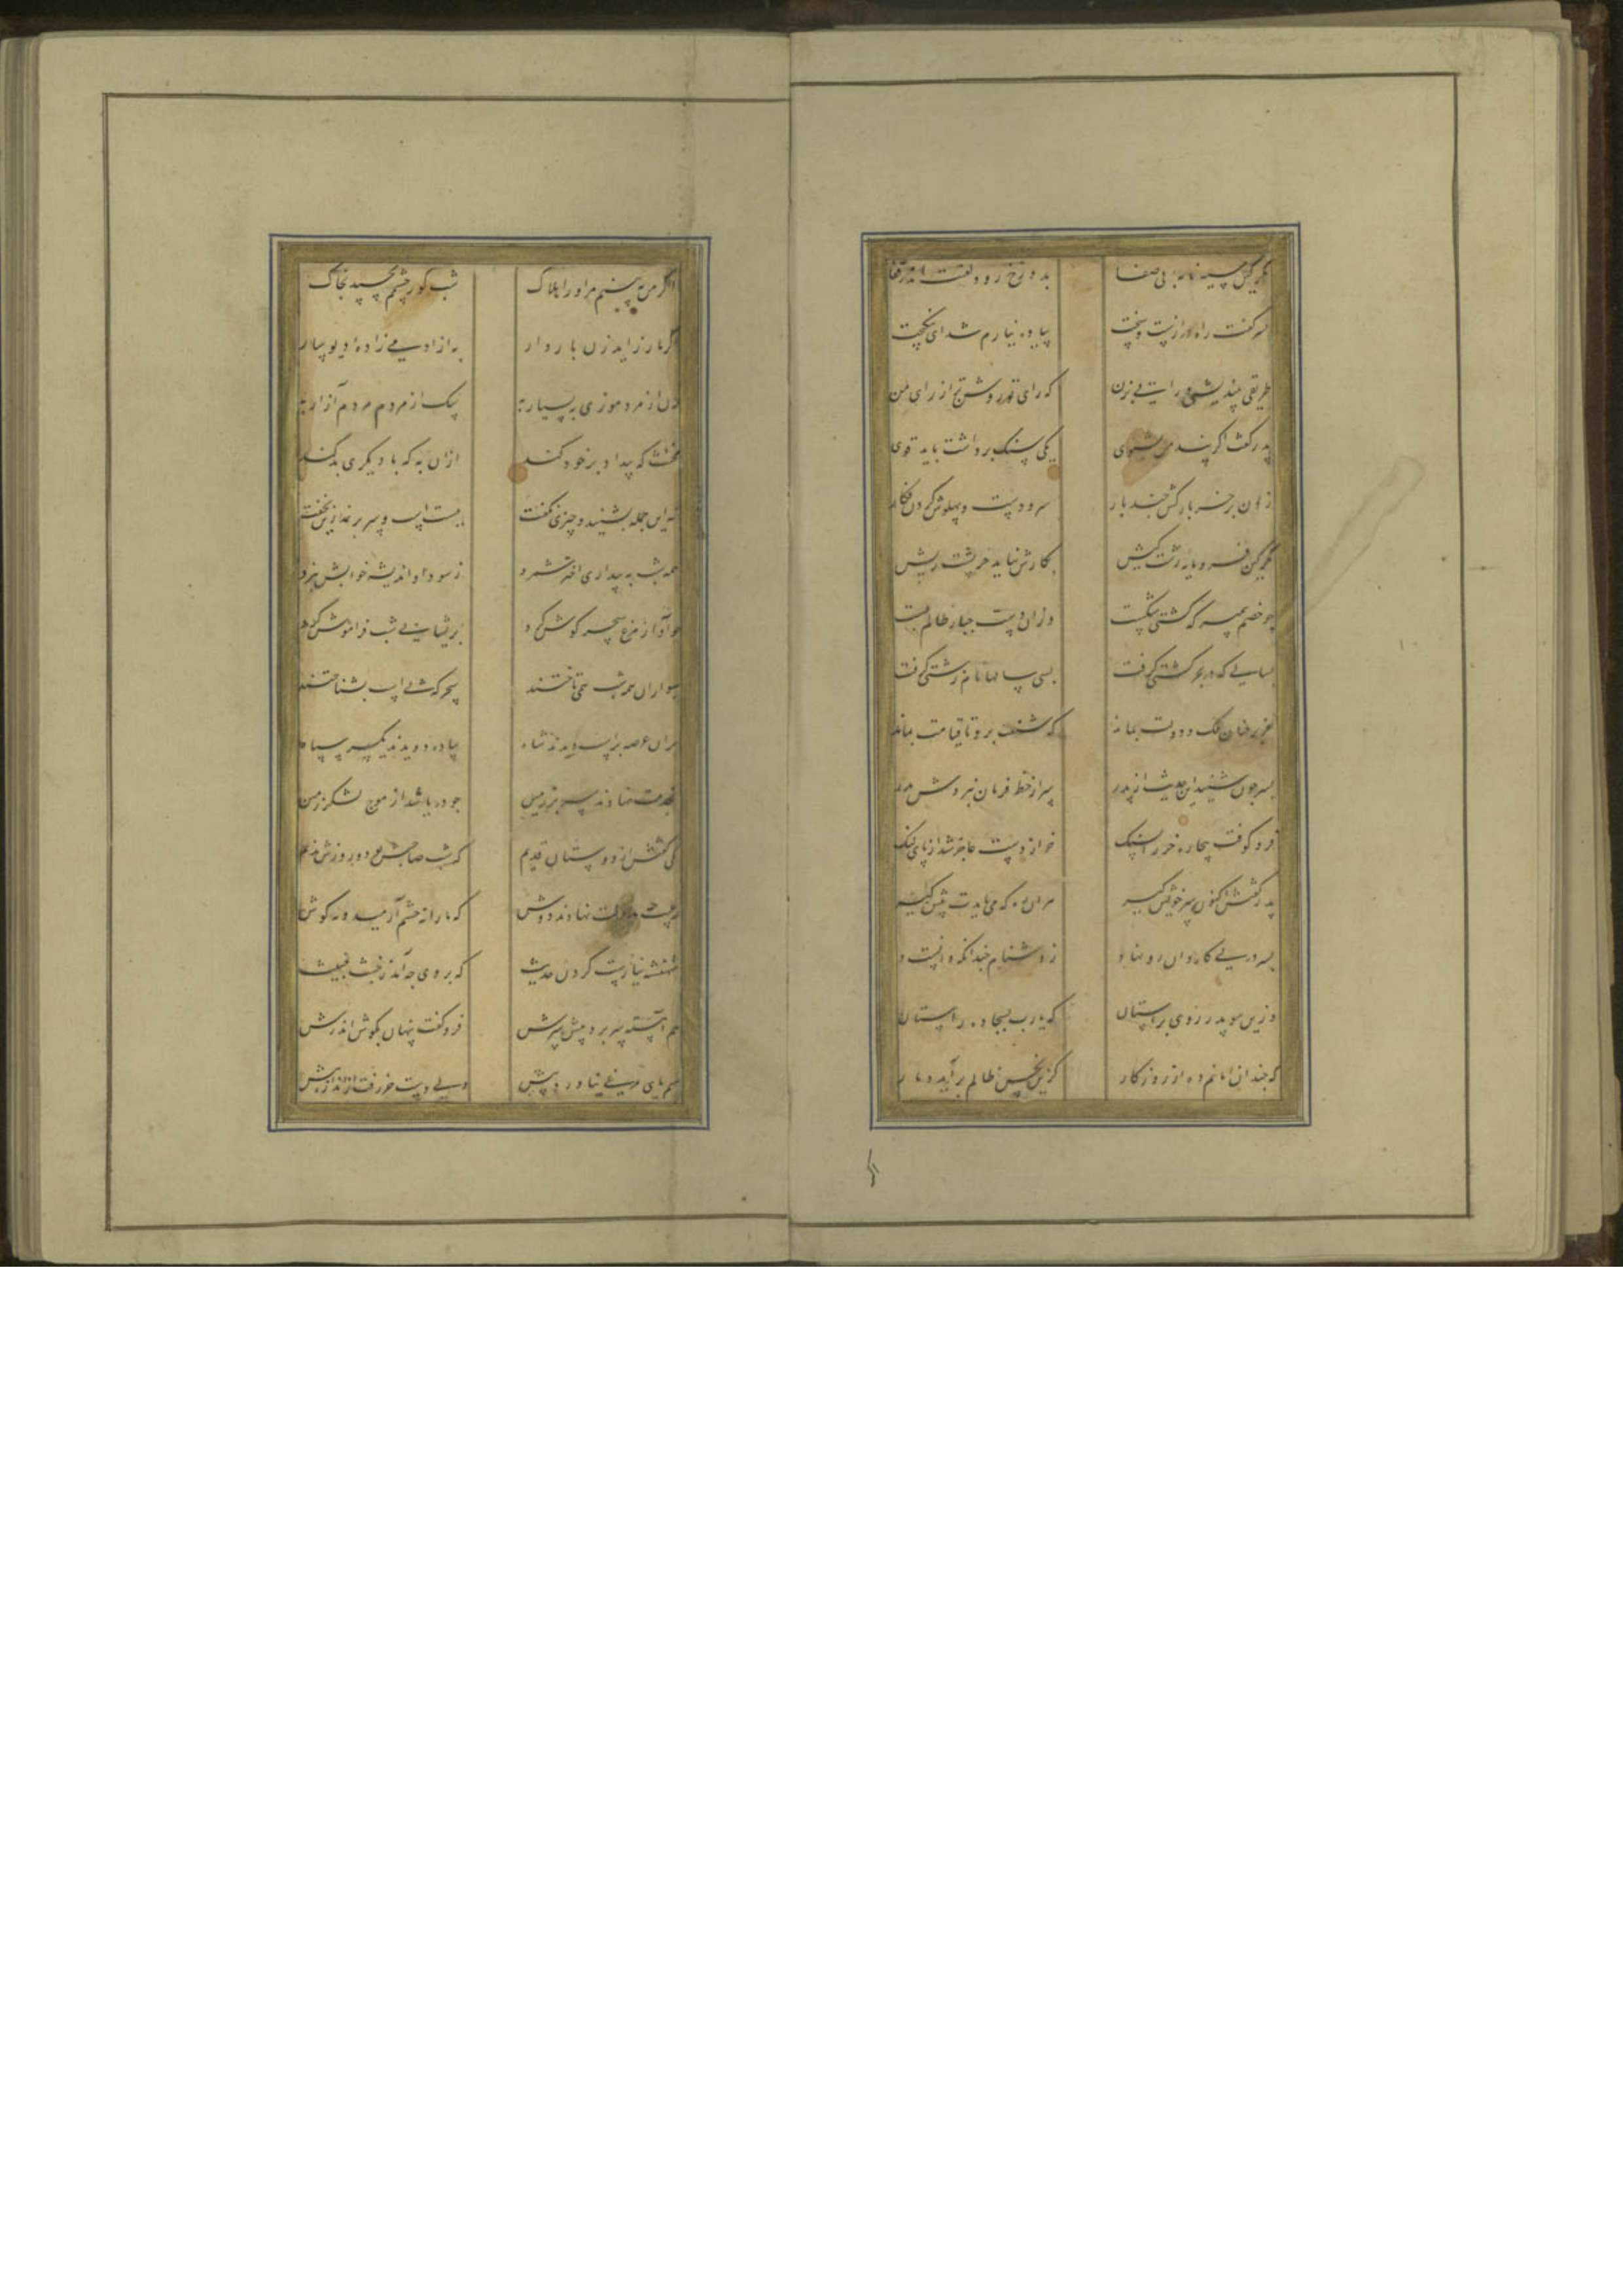 مگر کین سیه نامه بی صفا بدوزخ رود لعنت اندر قفا
پسر گفت راه درازست و سخت پیاده نیارم شد ای نیکبخت
طریقی بیندیش و رایی بزن که رای تو روشن تر از رای من
پدر گفت اگر پند من بشنوی یکی سنک برداشت باید قوی
زدن بر خر بارکش چند بار سر و دست و پهلوش کردن فکار
مگر کین فرومایه زشت کیش بکارش نیاید خر پشت ریش
چو خضر پیمبر که کشتی شکست وزان دست جبار ظالم ببست
بسالی که در بحر کشتی کرفت بسی سالها نام زشتی کرفت
که شنعت برو تا قیامت بماند
پسر چون شنید این حدیث از پدر سر از خط فرمان نبردش بدر
فرو کوفت بیچاره خر را بسنک خر از دست عاجز شد از پای لنک
پدر گفتش اکنون سر خویش کیر هر آن ره که می بایدت پیش کیر
پسر در پی کاروان اوفتاد ز دشنام چندانکه دانست داد
وزین سو پدر روی بر آستان که یارب بسجاده راستان
که چندان امانم ده از روزکار کزین نحس ظالم برآید دمار
اگر من نبینم مر او را هلاک شب کور چشمم نخسپد بخاک
اگر مار زاید زن باردار به از آدمی زاده دیو سار
زن از مرد موذی به بسیار به سک از مردم مردم آزار به
مخنث که بیداد بر خود کند ازان به که با دیکری بد کند
شه این جمله بشنید و چیزی نگفت ببست اسب و سر بر نمد زین بخفت
همه شب به بیداری اختر شمرد ز سودا و اندیشه خوابش نبرد
چو آواز مرغ سحر کوش کرد پریشانی شب فراموش کرد
سواران همه شب همی تاختند سحر که پی اسب بشناختند
بران عرصه بر اسب دیدند شاه پیاده دویدند یکسر سپاه
بخدمت نهادند سر بر زمین چو دریا شد از موج لشکر زمین
یکی گفتش از دوستان قدیم که شب حاجبش بود و روزش ندیم
رعیت چه نزلت نهادند دوش که ما را نه چشم آرمید و نه کوش
شهنشه نیارست کردن حدیث که بر وی چه آمد ز خبث خبیث
هم آهسته سر برد پیش سرش فرو گفت پنهان بکوش اندرش
کسم پای مرغی نیاورد پیش ولی دست خر رفت از اندازه بیش